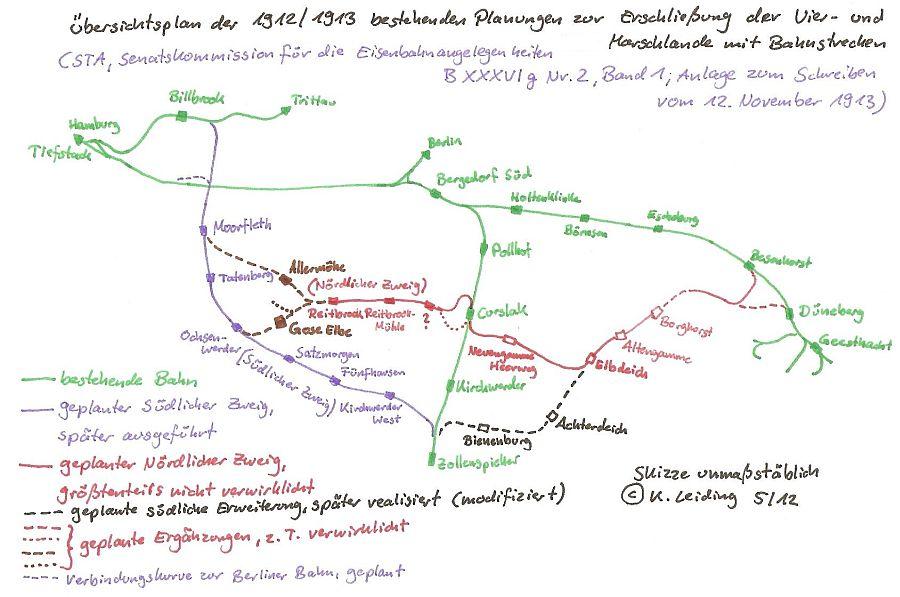 Übersichtsplan der 1912/1913 bestehenden Planungen zur Erschließung der Vier- und
Marschlande mit Bahnstrecken
(STA, Senatskommission für die Eisenbahnangelegenheiten
B XXXVI g Nr. 2, Band 1; Anlage zum Schreiben
vom 12. November 1913)
Billbrook
Trittau
Hamburg
Tiefstack
Berlin
Bergedorf Süd
Holtenklinke
Börnsen
Escheburg
Besenhorst
Düneberg
Geesthacht
Pollhof
Moorfleth
Allermöhe
(Nördlicher Zweig)
Tatenberg
Reitbrook
Reitbrook-
Mühle
?
Corslak
Gose Elbe
Borghorst
Altengamme
Elbdeich
Neuengamme
Heerweg
Ochsen-
werder
(Südlicher Zweig)
Satzmorgen
Fünfhausen
Kirchwerder
West
Kirchwerder
Bienenburg
Achterdeich
Zollenspieker
bestehende Bahn
geplanter Südlicher Zweig,
später ausgeführt
geplanter Nördlicher Zweig,
größtenteils nicht verwirklicht
geplante südliche Erweiterung, später realisiert (modifiziert)
geplante Ergänzungen, z. T. verwirklicht
Verbindungskurve zur Berliner Bahn, geplant
Skizze unmaßstäblich
© K. Leiding 5/12